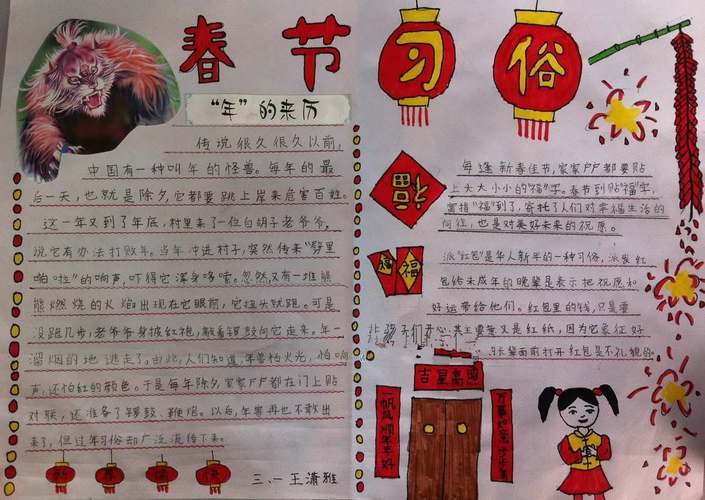 春节习俗
“年”的来历
传说很久很久以前，
中国有一种叫年的怪兽。每年的最
后一天，也就是除夕，它都要跳上岸来危害百姓。
这一年又到了年底，村里来了一位白胡子老爷爷，
说它有办法打败年。当年冲进村子，突然传来“劈里
啪啦”的响声，吓得它浑身哆嗦。忽然，又有一堆熊
熊燃烧的火焰出现在它眼前，它扭头就跑。可是
没跑几步，老爷爷身披红袍，敲着锣鼓向它走来。年一
溜烟的地逃走了，由此，人们知道，年害怕火光，怕响
声，还怕红的颜色。于是每年除夕家家户户都在门上贴
对联，还准备了锣鼓、鞭炮。以后，年兽再也不敢出
来了，但过年习俗却广泛流传下来。
三、一 王潇雅
福
每逢新春佳节，家家户户都要贴
上大大小小的“福”字。春节到贴“福”字，
意指“福”到了，寄托了人们对幸福生活的
向往，也是对美好未来的祝愿。
福
派“红包”是华人新年的一种习俗，派发红
包给未成年的晚辈是表示把祝愿和
好运带给他们。红包里的钱，只是要
让孩子们开心，其主要意义是红纸，因为它象征好
长辈面前打开红包是不礼貌的
吉星高照
一帆风顺年年好
万事如意步步高